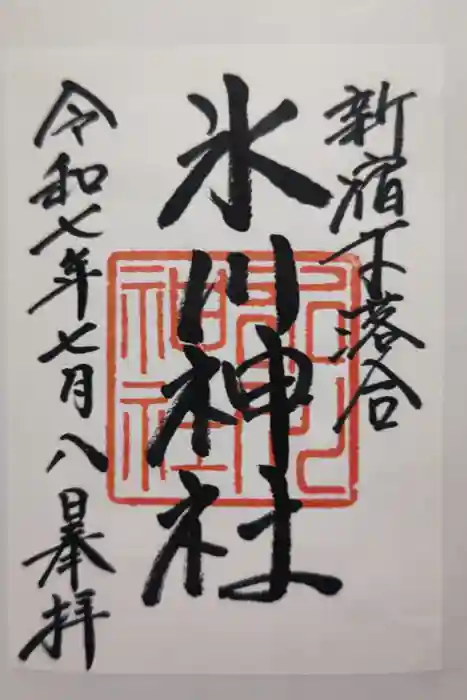 新宿下落合
氷川神社
氷川神社
令和七年七月八日奉拝